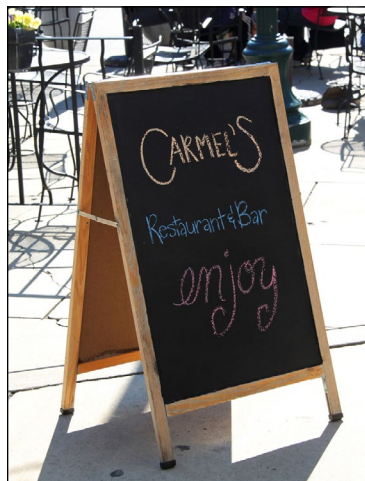 CARMEL'S
Restaurant & Bar
enjoy